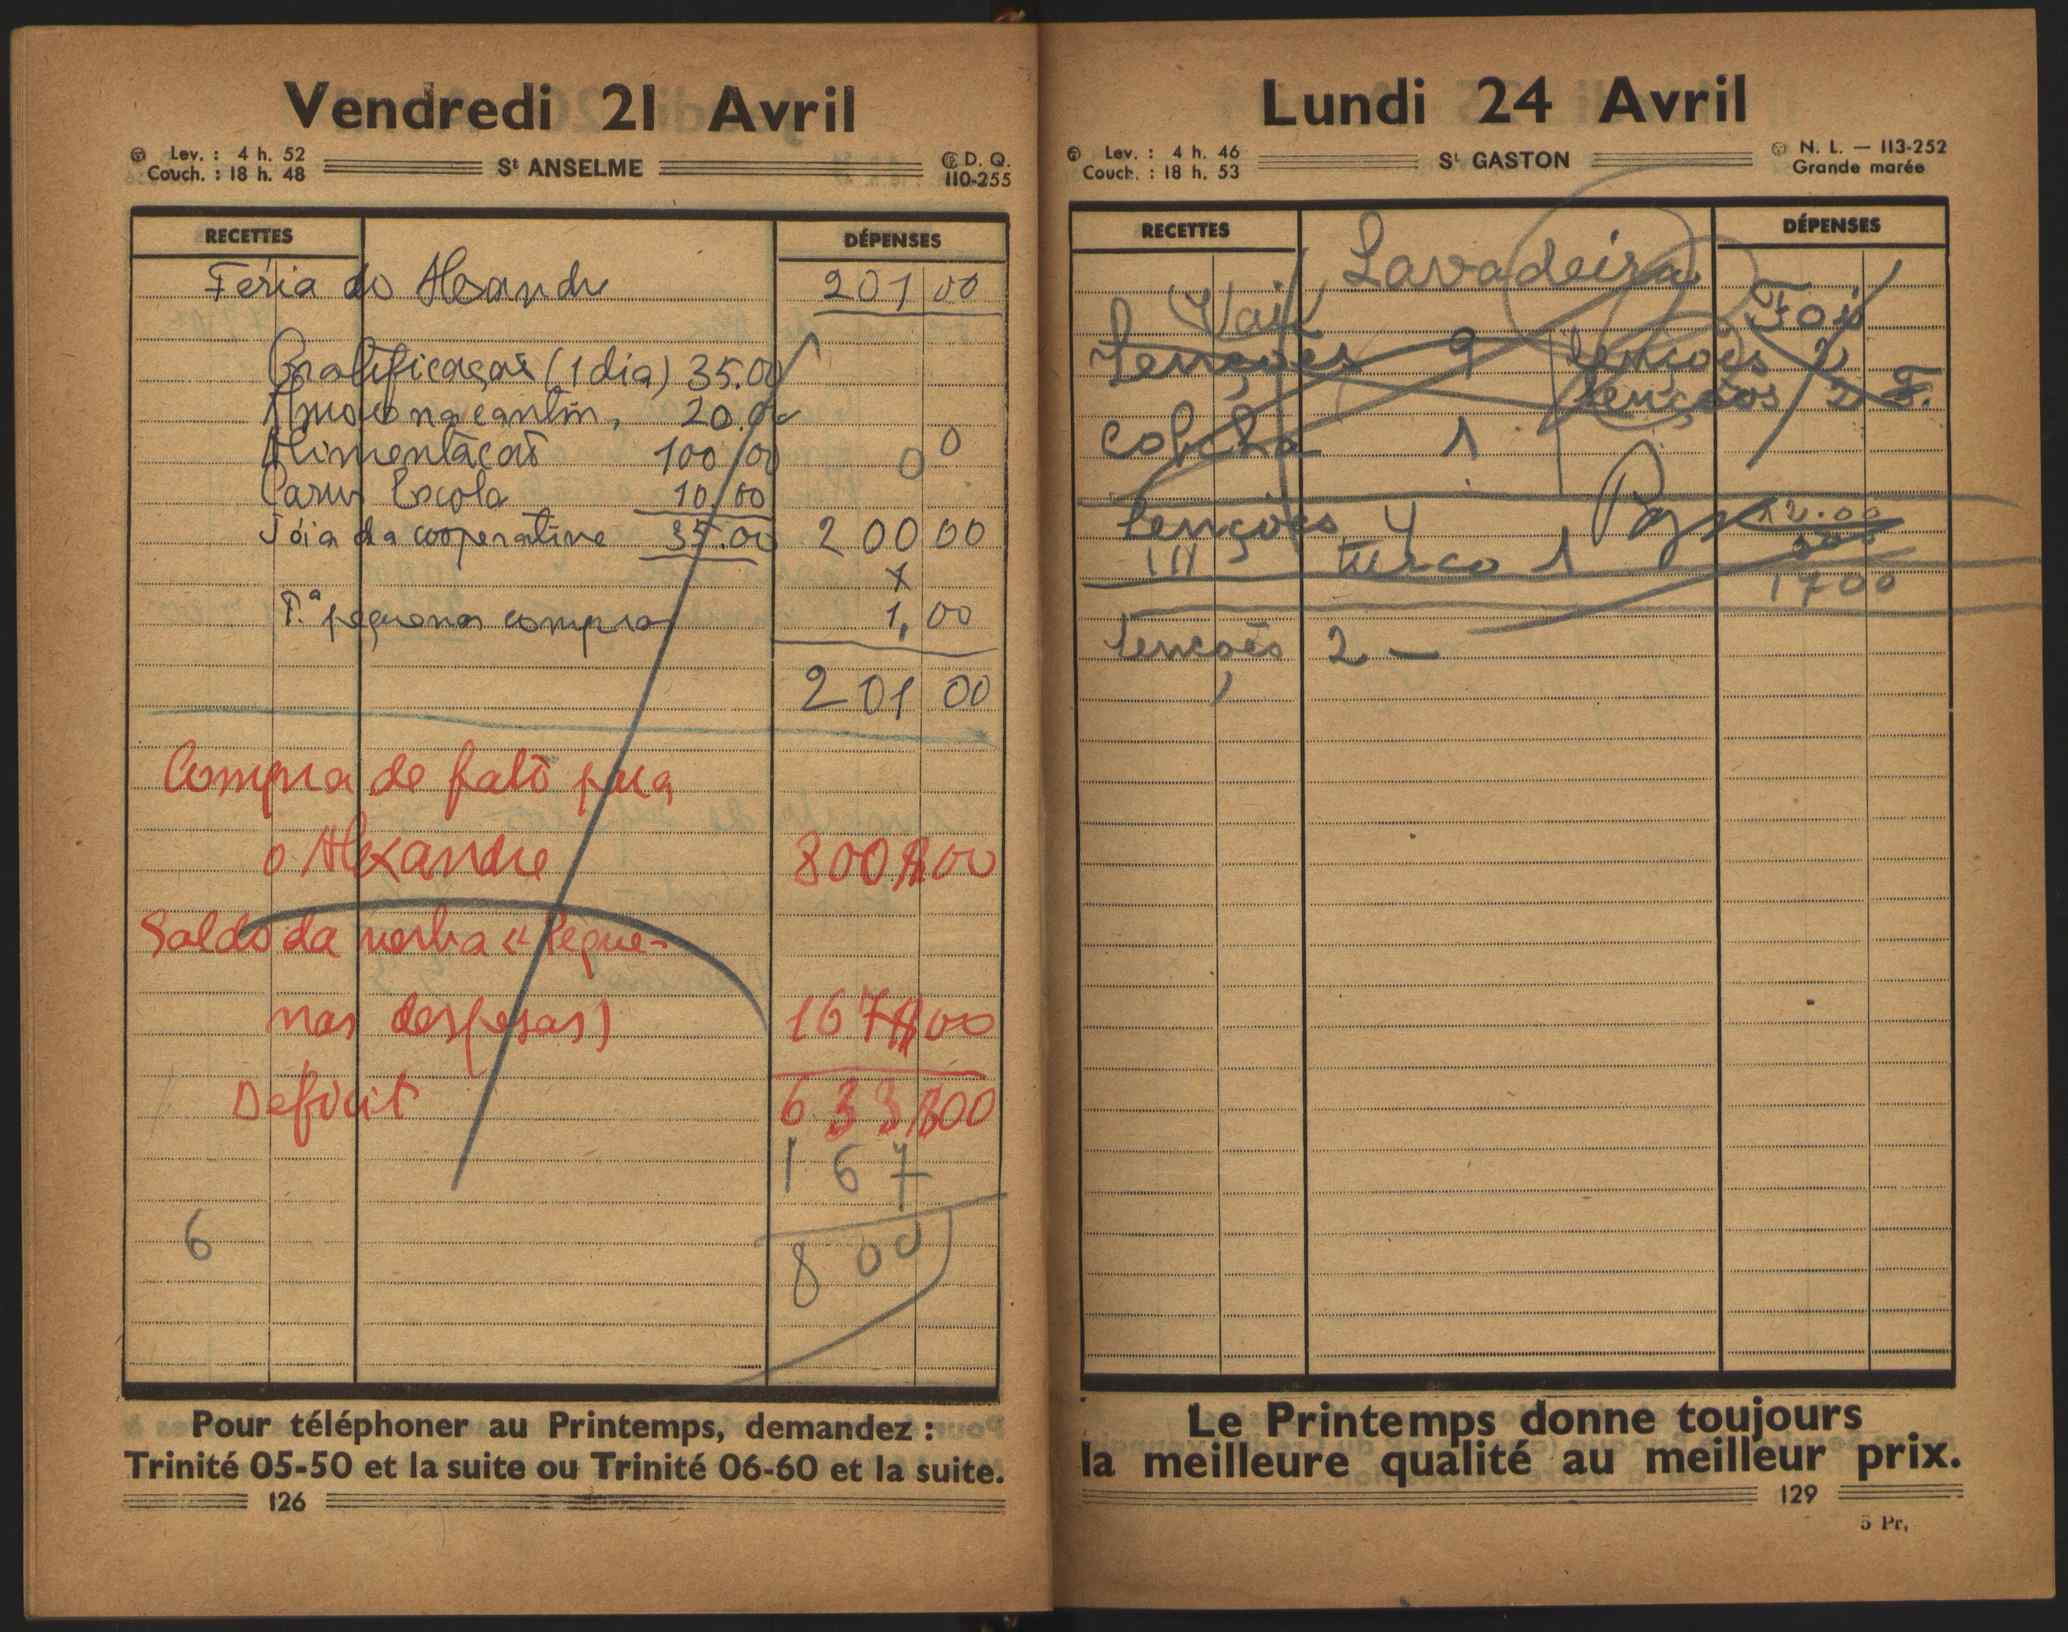 Vendredi 21 Avril
Lev. : 4 h. 52
Couch. : 18 h. 48
St ANSELME
D. Q.
110-255
RECETTES
DÉPENSES
Féria do Alexandre 201 00
Gratificação (1 dia) 35.00
Almoço na cantin, 20.00
Alimentação 100,00
0 0
Para Escola 10,00
Jóia da cooperative 35.00 200 00
x
P.ª pequenas compras 1,00
201 00
Compra de fato para
o Alexandre 800$00
Saldo da verba « Peque-
nas despesas) 167$00
Deficit 633$00
167
6
800
Pour téléphoner au Printemps, demandez :
Trinité 05-50 et la suite ou Trinité 06-60 et la suite.
126
Lundi 24 Avril
Lev. : 4 h. 46
Couch. : 18 h. 53
St GASTON
N. L. — 113-252
Grande marée
RECETTES
DÉPENSES
Lavadeira
Vai Foi
Lençoes 9 lençoes 2
lençoes 2 F.
Colcha 1
lençoes 4 12.00
III turco 1
17 00
lençoes 2 —
Le Printemps donne toujours
la meilleure qualité au meilleur prix.
129
5 Pr.